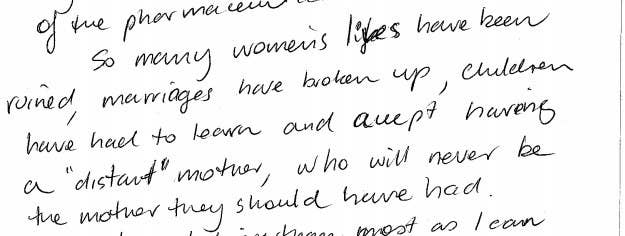 of the pharmaceu
So many women's lives have been
ruined, marriages have broken up, children
have had to learn and accept having
a "distant" mother, who will never be
the mother they should have had.
most as I can